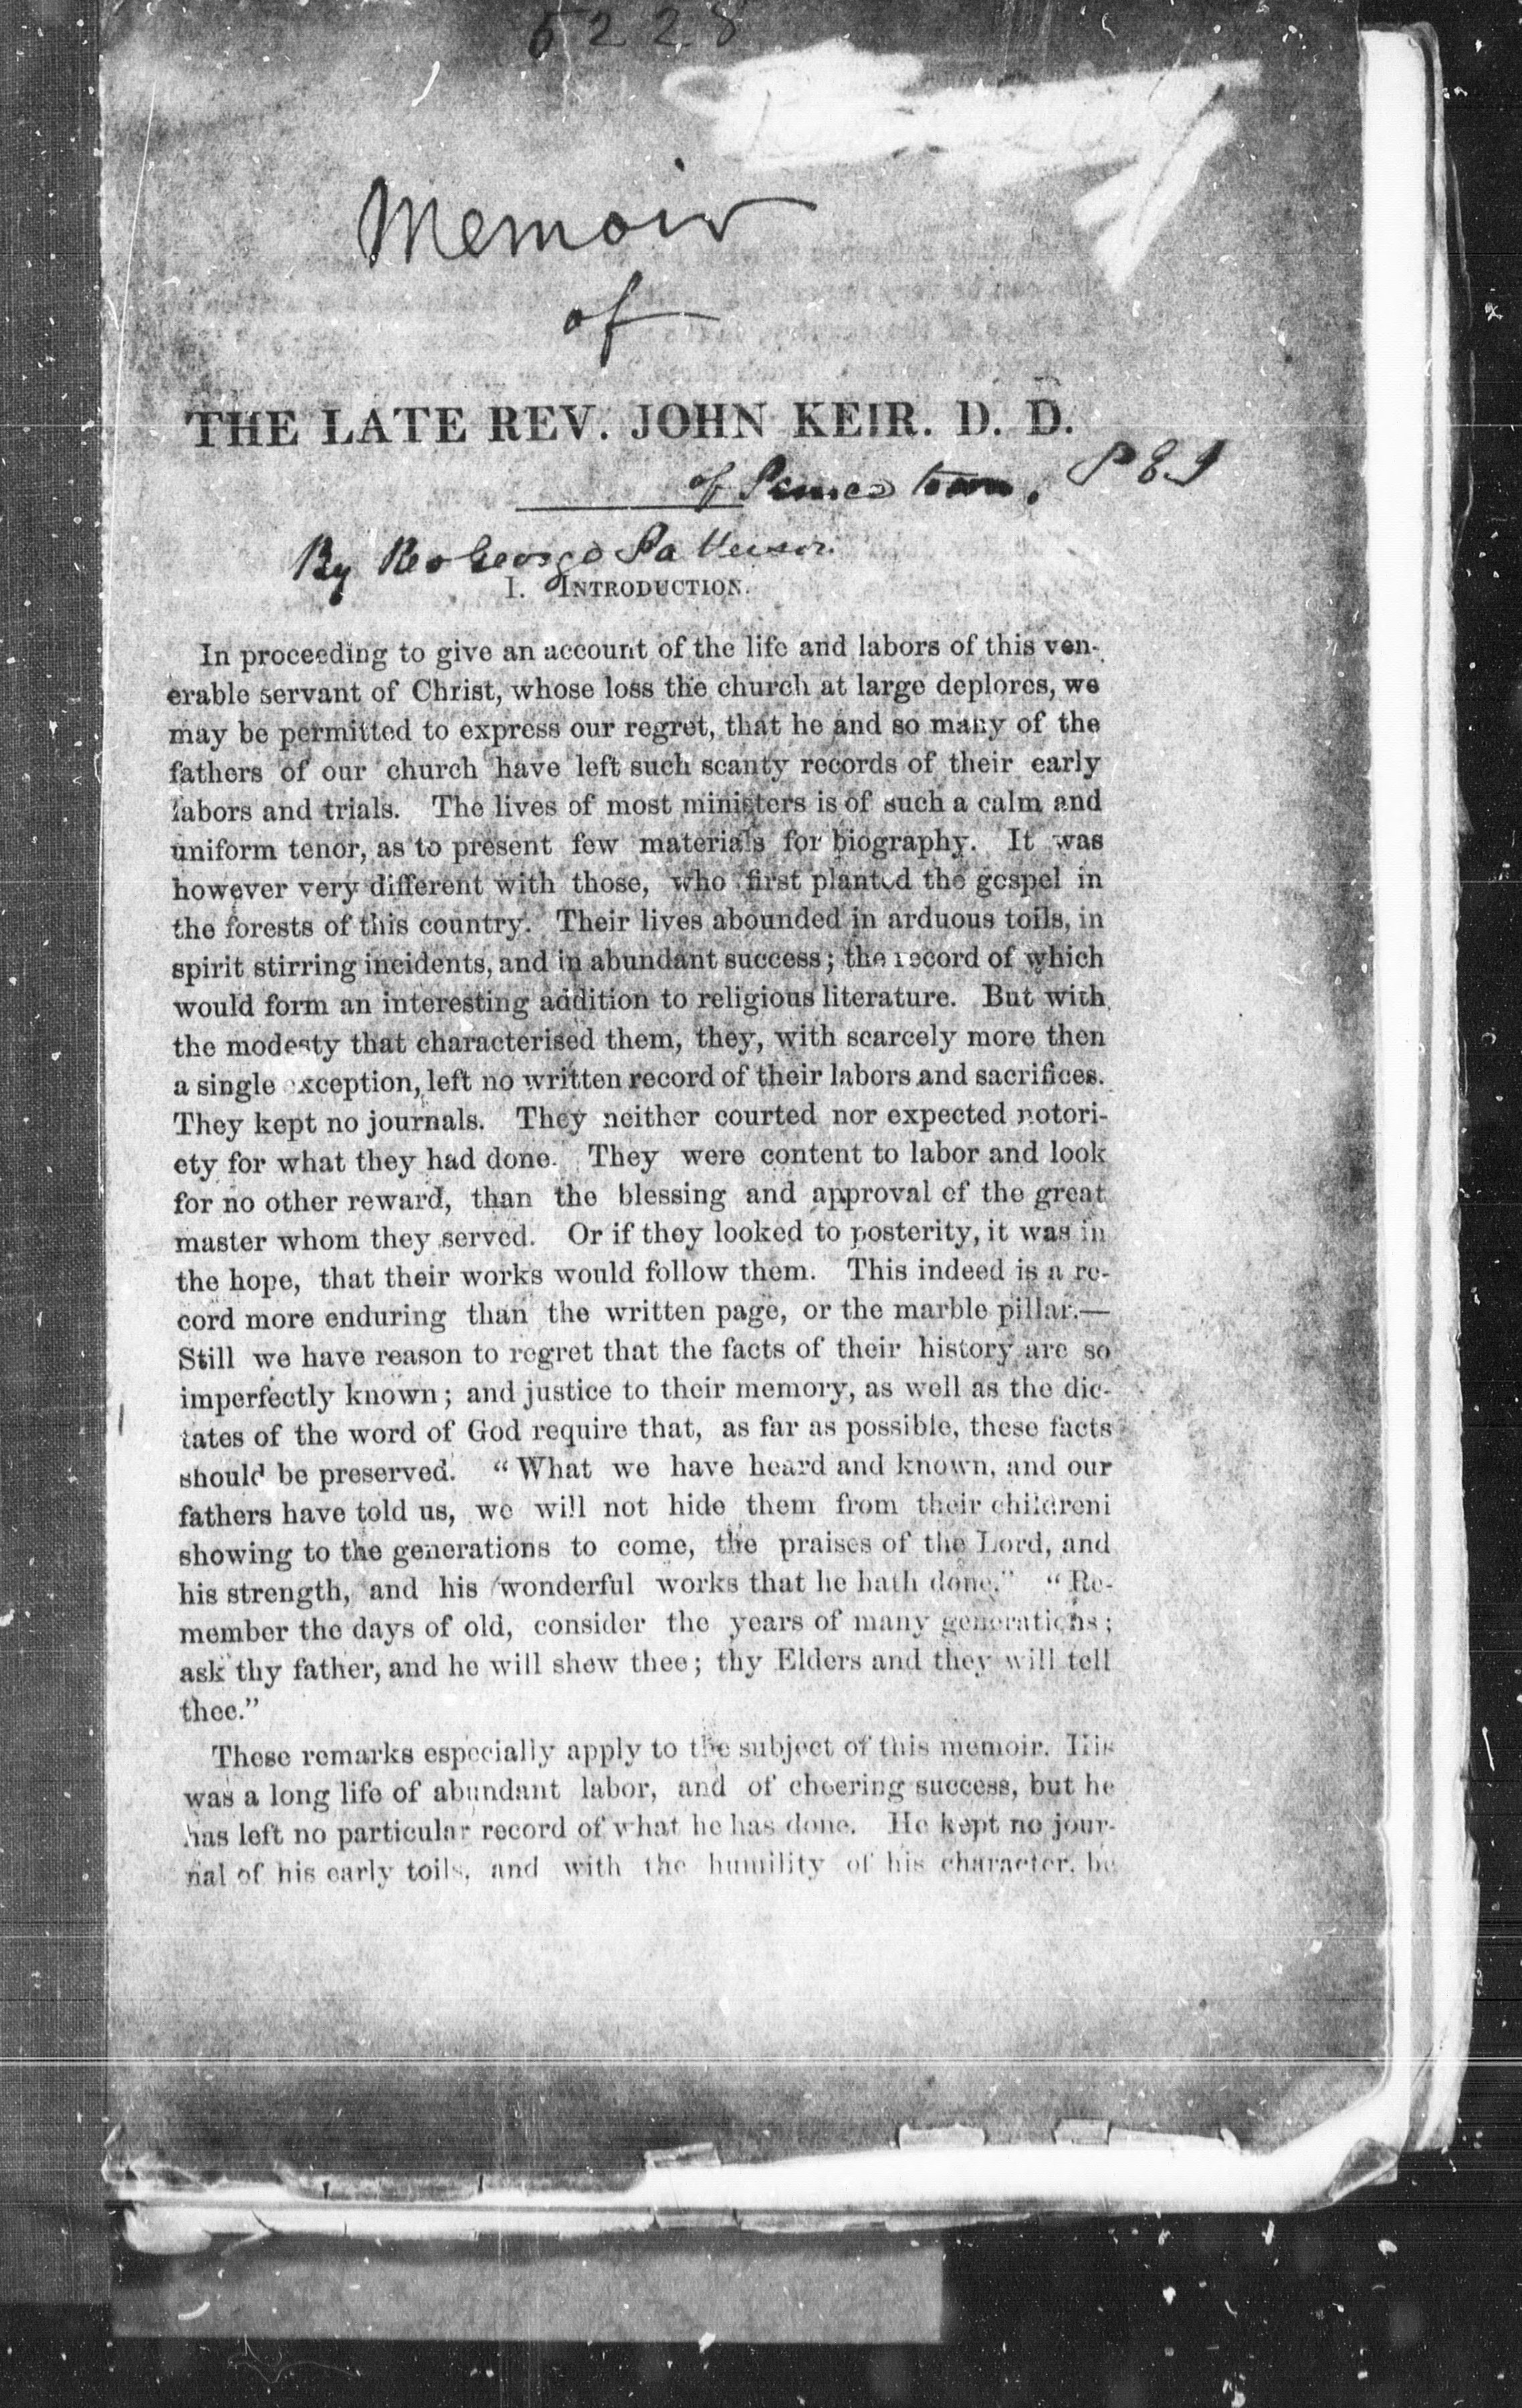 5228
Memoir
of
THE LATE REV. JOHN KEIR. D. D.
of Princetown, P E I
By Rev George Patterson
I. INTRODUCTION.
In proceeding to give an account of the life and labors of this ven-
erable servant of Christ, whose loss the church at large deplores, we
may be permitted to express our regret, that he and so many of the
fathers of our church have left such scanty records of their early
labors and trials. The lives of most ministers is of such a calm and
uniform tenor, as to present few materials for biography. It was
however very different with those, who first planted the gospel in
the forests of this country. Their lives abounded in arduous toils, in
spirit stirring incidents, and in abundant success; the record of which
would form an interesting addition to religious literature. But with
the modesty that characterised them, they, with scarcely more then
a single exception, left no written record of their labors and sacrifices.
They kept no journals. They neither courted nor expected notori-
ety for what they had done. They were content to labor and look
for no other reward, than the blessing and approval of the great
master whom they served. Or if they looked to posterity, it was in
the hope, that their works would follow them. This indeed is a re-
cord more enduring than the written page, or the marble pillar.—
Still we have reason to regret that the facts of their history are so
imperfectly known; and justice to their memory, as well as the dic-
tates of the word of God require that, as far as possible, these facts
should be preserved. "What we have heard and known, and our
fathers have told us, we will not hide them from their childreni
showing to the generations to come, the praises of the Lord, and
his strength, and his wonderful works that he hath done." "Re-
member the days of old, consider the years of many generations;
ask thy father, and he will shew thee; thy Elders and they will tell
thee."
These remarks especially apply to the subject of this memoir. His
was a long life of abundant labor, and of cheering success, but he
has left no particular record of what he has done. He kept no jour-
nal of his early toils, and with the humility of his character, he